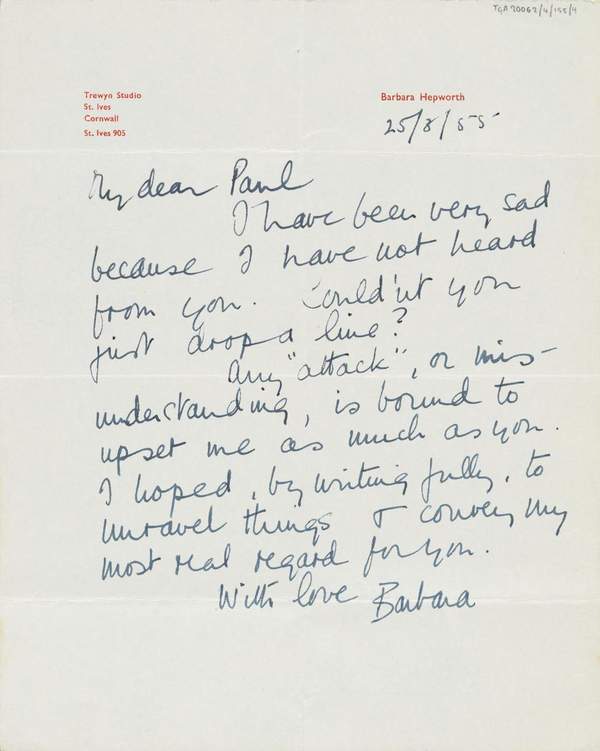 TGA 20062/4/155/4
Trewyn Studio
St. Ives
Cornwall
St. Ives 905
Barbara Hepworth
25/8/55
My dear Paul
I have been very sad
because I have not heard
from you. Could'nt you
just drop a line?
Any "attack", or mis-
understanding, is bound to
upset me as much as you.
I hoped, by writing fully, to
unravel things & convey my
most real regard for you.
With love Barbara